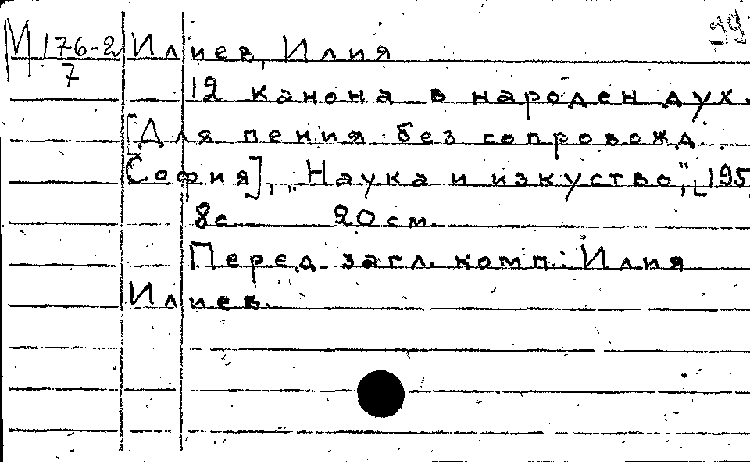 99
М 176-2 Илиев, Илия
7
12 канона в народен дух.
[Для пения без сопровожд.
София], "Наука и изкуство", [195
8с. 20 см.
Перед загл. комп.: Илия
Илиев.